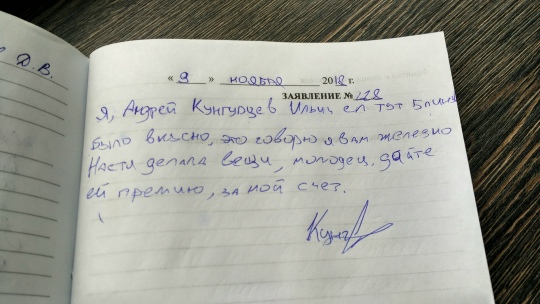 Д.В.
« 9 » ноября 2018 г.
ЗАЯВЛЕНИЕ № 128
Я, Андрей Кунгурцев Ильич ел тут блины
было вкусно, это говорю я вам железно
Настя делала вещи, молодец, дайте
ей премию, за мой счет.